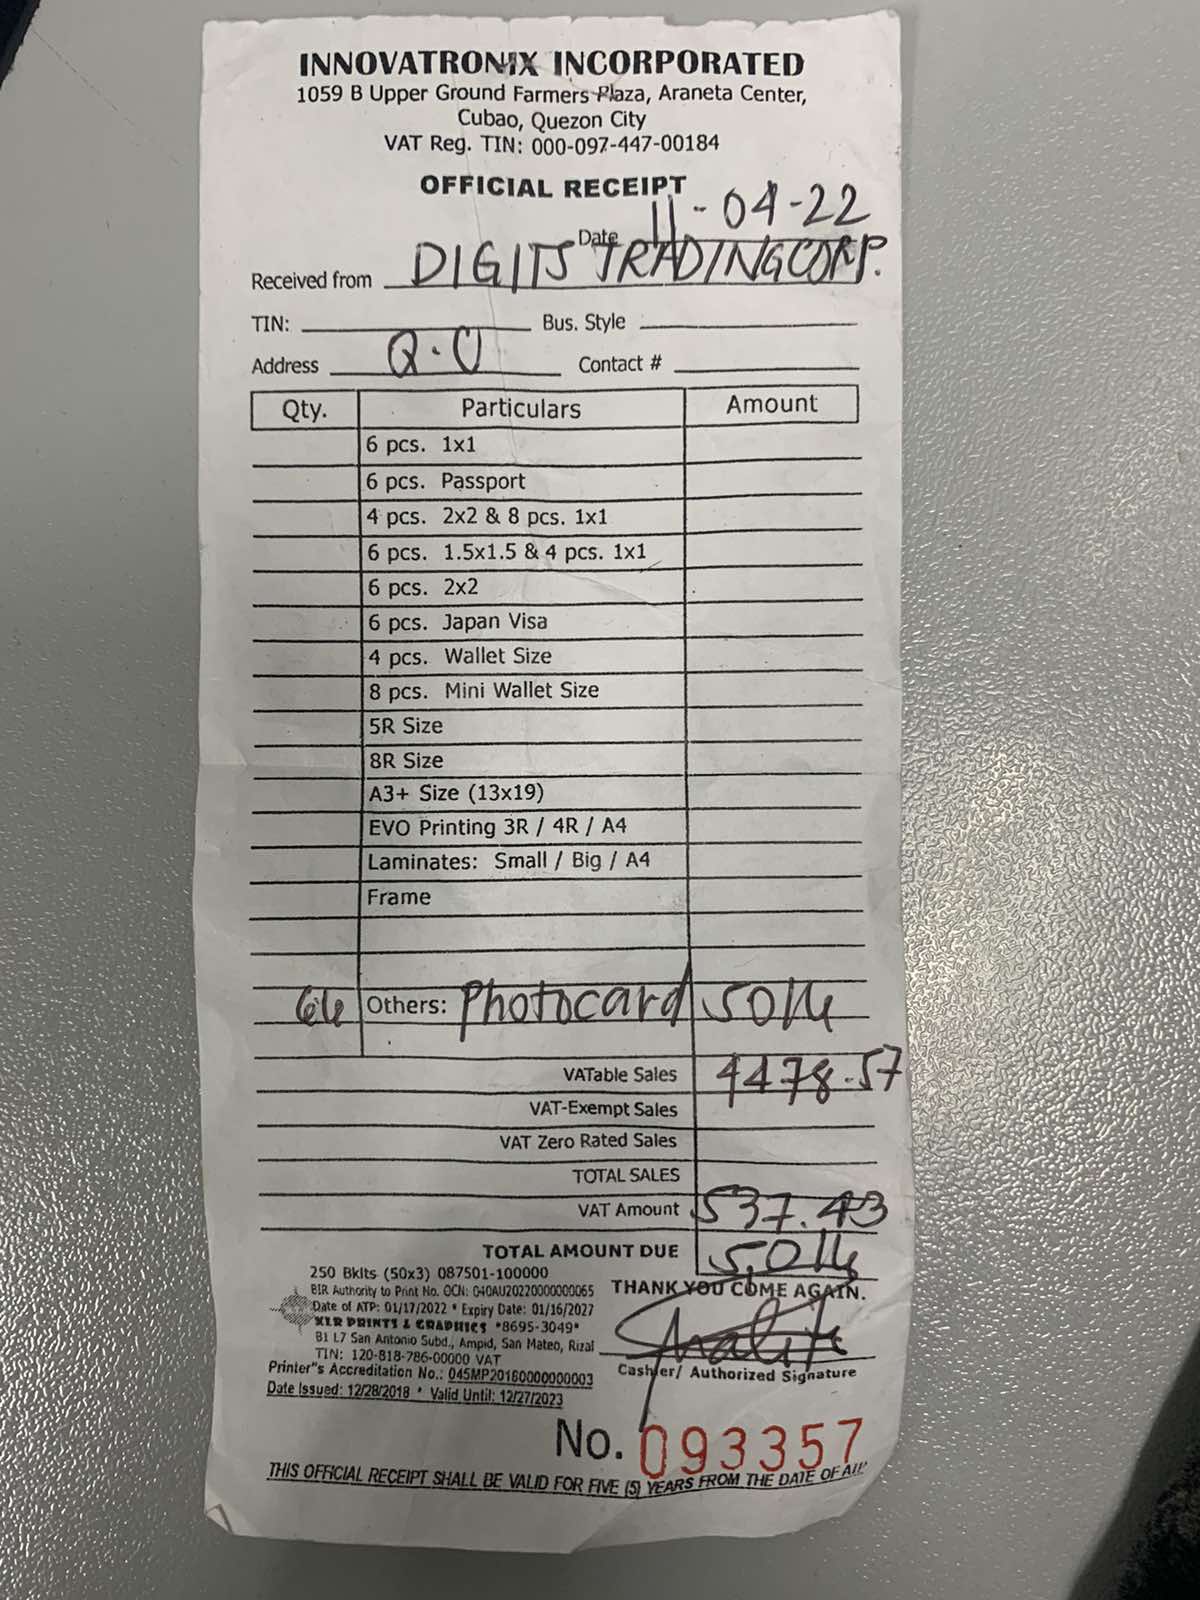 INNOVATRONIX INCORPORATED
1059 B Upper Ground Farmers Plaza, Araneta Center,
Cubao, Quezon City
VAT Reg. TIN: 000-097-447-00184
OFFICIAL RECEIPT
Date 11-04-22
Received from DIGITS TRADING CORP.
TIN: Bus. Style
Address Q.C Contact #
Qty. Particulars Amount
6 pcs. 1x1
6 pcs. Passport
4 pcs. 2x2 & 8 pcs. 1x1
6 pcs. 1.5x1.5 & 4 pcs. 1x1
6 pcs. 2x2
6 pcs. Japan Visa
4 pcs. Wallet Size
8 pcs. Mini Wallet Size
5R Size
8R Size
A3+ Size (13x19)
EVO Printing 3R / 4R / A4
Laminates: Small / Big / A4
Frame
66 Others: Photocard 5016
VATable Sales 4478.57
VAT-Exempt Sales
VAT Zero Rated Sales
TOTAL SALES
VAT Amount 537.43
TOTAL AMOUNT DUE 5,016
250 Bklts (50x3) 087501-100000
BIR Authority to Print No. OCN: 040AU20220000000065
Date of ATP: 01/17/2022 * Expiry Date: 01/16/2027
XLR PRINTS & GRAPHICS *8695-3049*
B1 L7 San Antonio Subd., Ampid, San Mateo, Rizal
TIN: 120-818-786-00000 VAT
Printer"s Accreditation No.: 045MP20180000000003
Date Issued: 12/28/2018 * Valid Until: 12/27/2023
THANK YOU COME AGAIN.
Cashier/ Authorized Signature
No. 093357
THIS OFFICIAL RECEIPT SHALL BE VALID FOR FIVE (5) YEARS FROM THE DATE OF